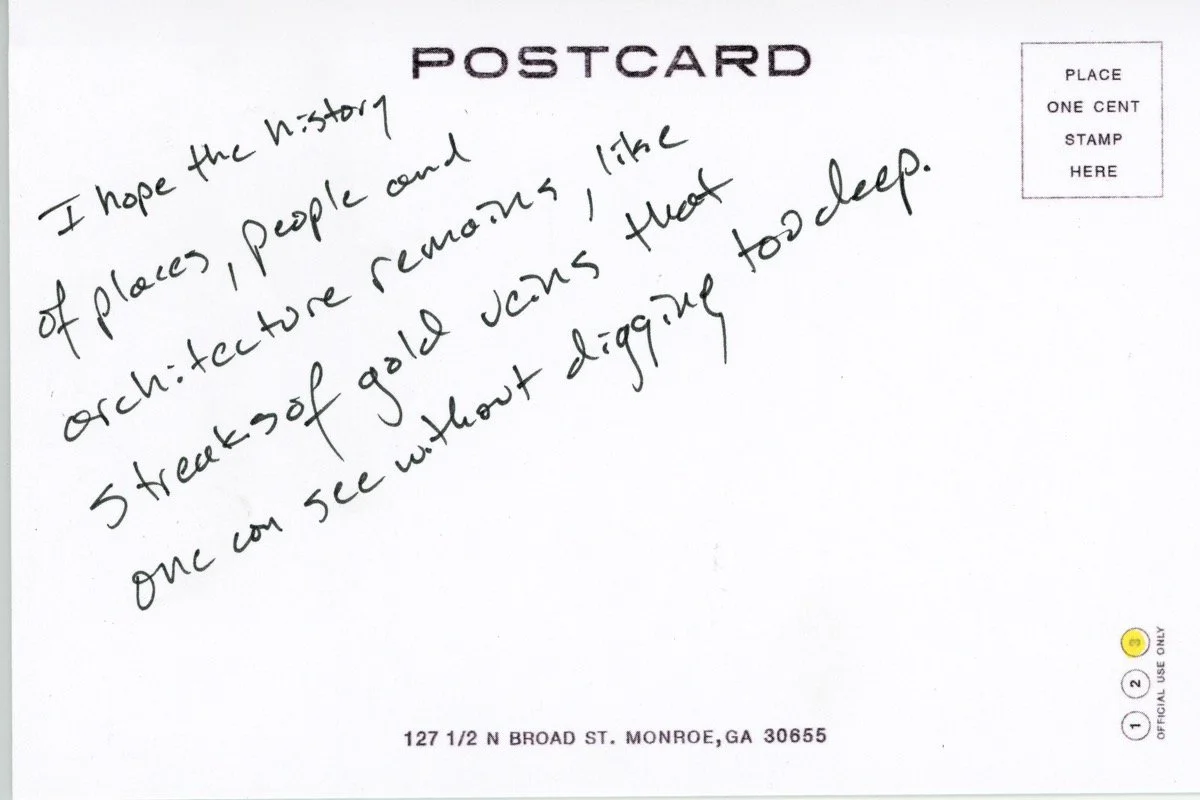 POSTCARD
PLACE
ONE CENT
STAMP
HERE
I hope the history
of places, people and
architecture remains, like
streaks of gold veins that
one can see without digging too deep.
127 1/2 N BROAD ST. MONROE, GA 30655
1 2 3
OFFICIAL USE ONLY